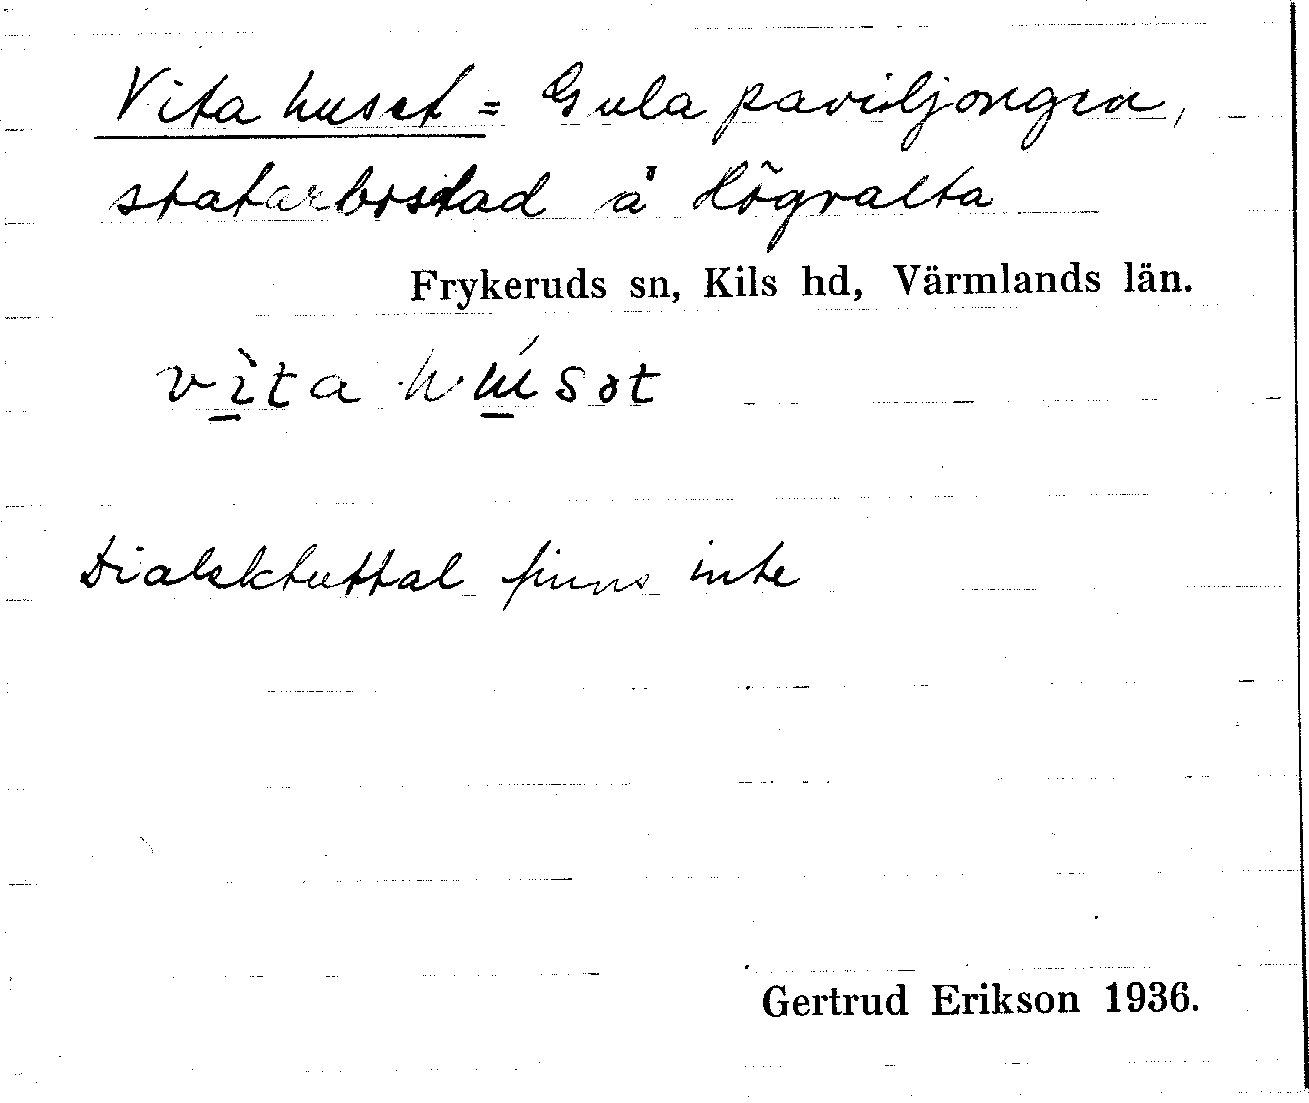 Vita huset = Gula paviljongen,
statarbostad å Högvalta
Frykeruds sn, Kils hd, Värmlands län.
vìta húsət
Dialektuttal finns inte
Gertrud Erikson 1936.